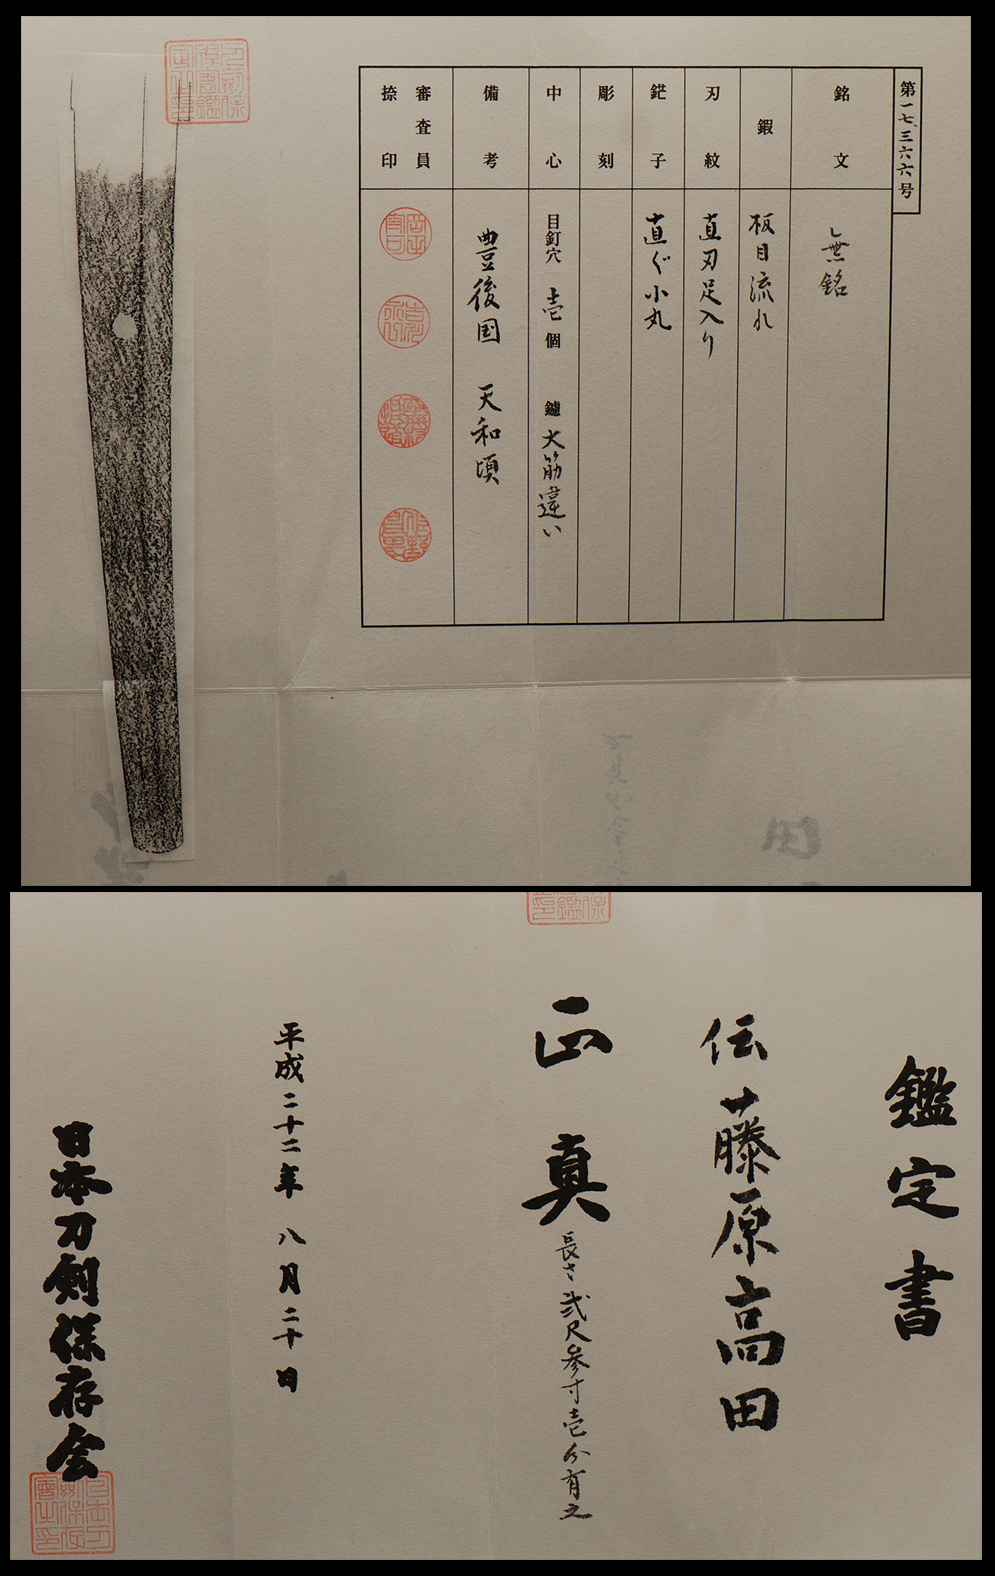 第一七、三六六号
銘文
無銘
鍜
板目流れ
刃紋
直刃足入り
鋩子
直ぐ小丸
彫刻
中心
目釘穴 壱個 鑢 大筋違い
備考
豊後国 天和頃
審査員
捺印
鑑定書
伝藤原高田
正真
長さ弐尺参寸壱分有之
平成二十二年 八月二十日
日本刀剣保存会